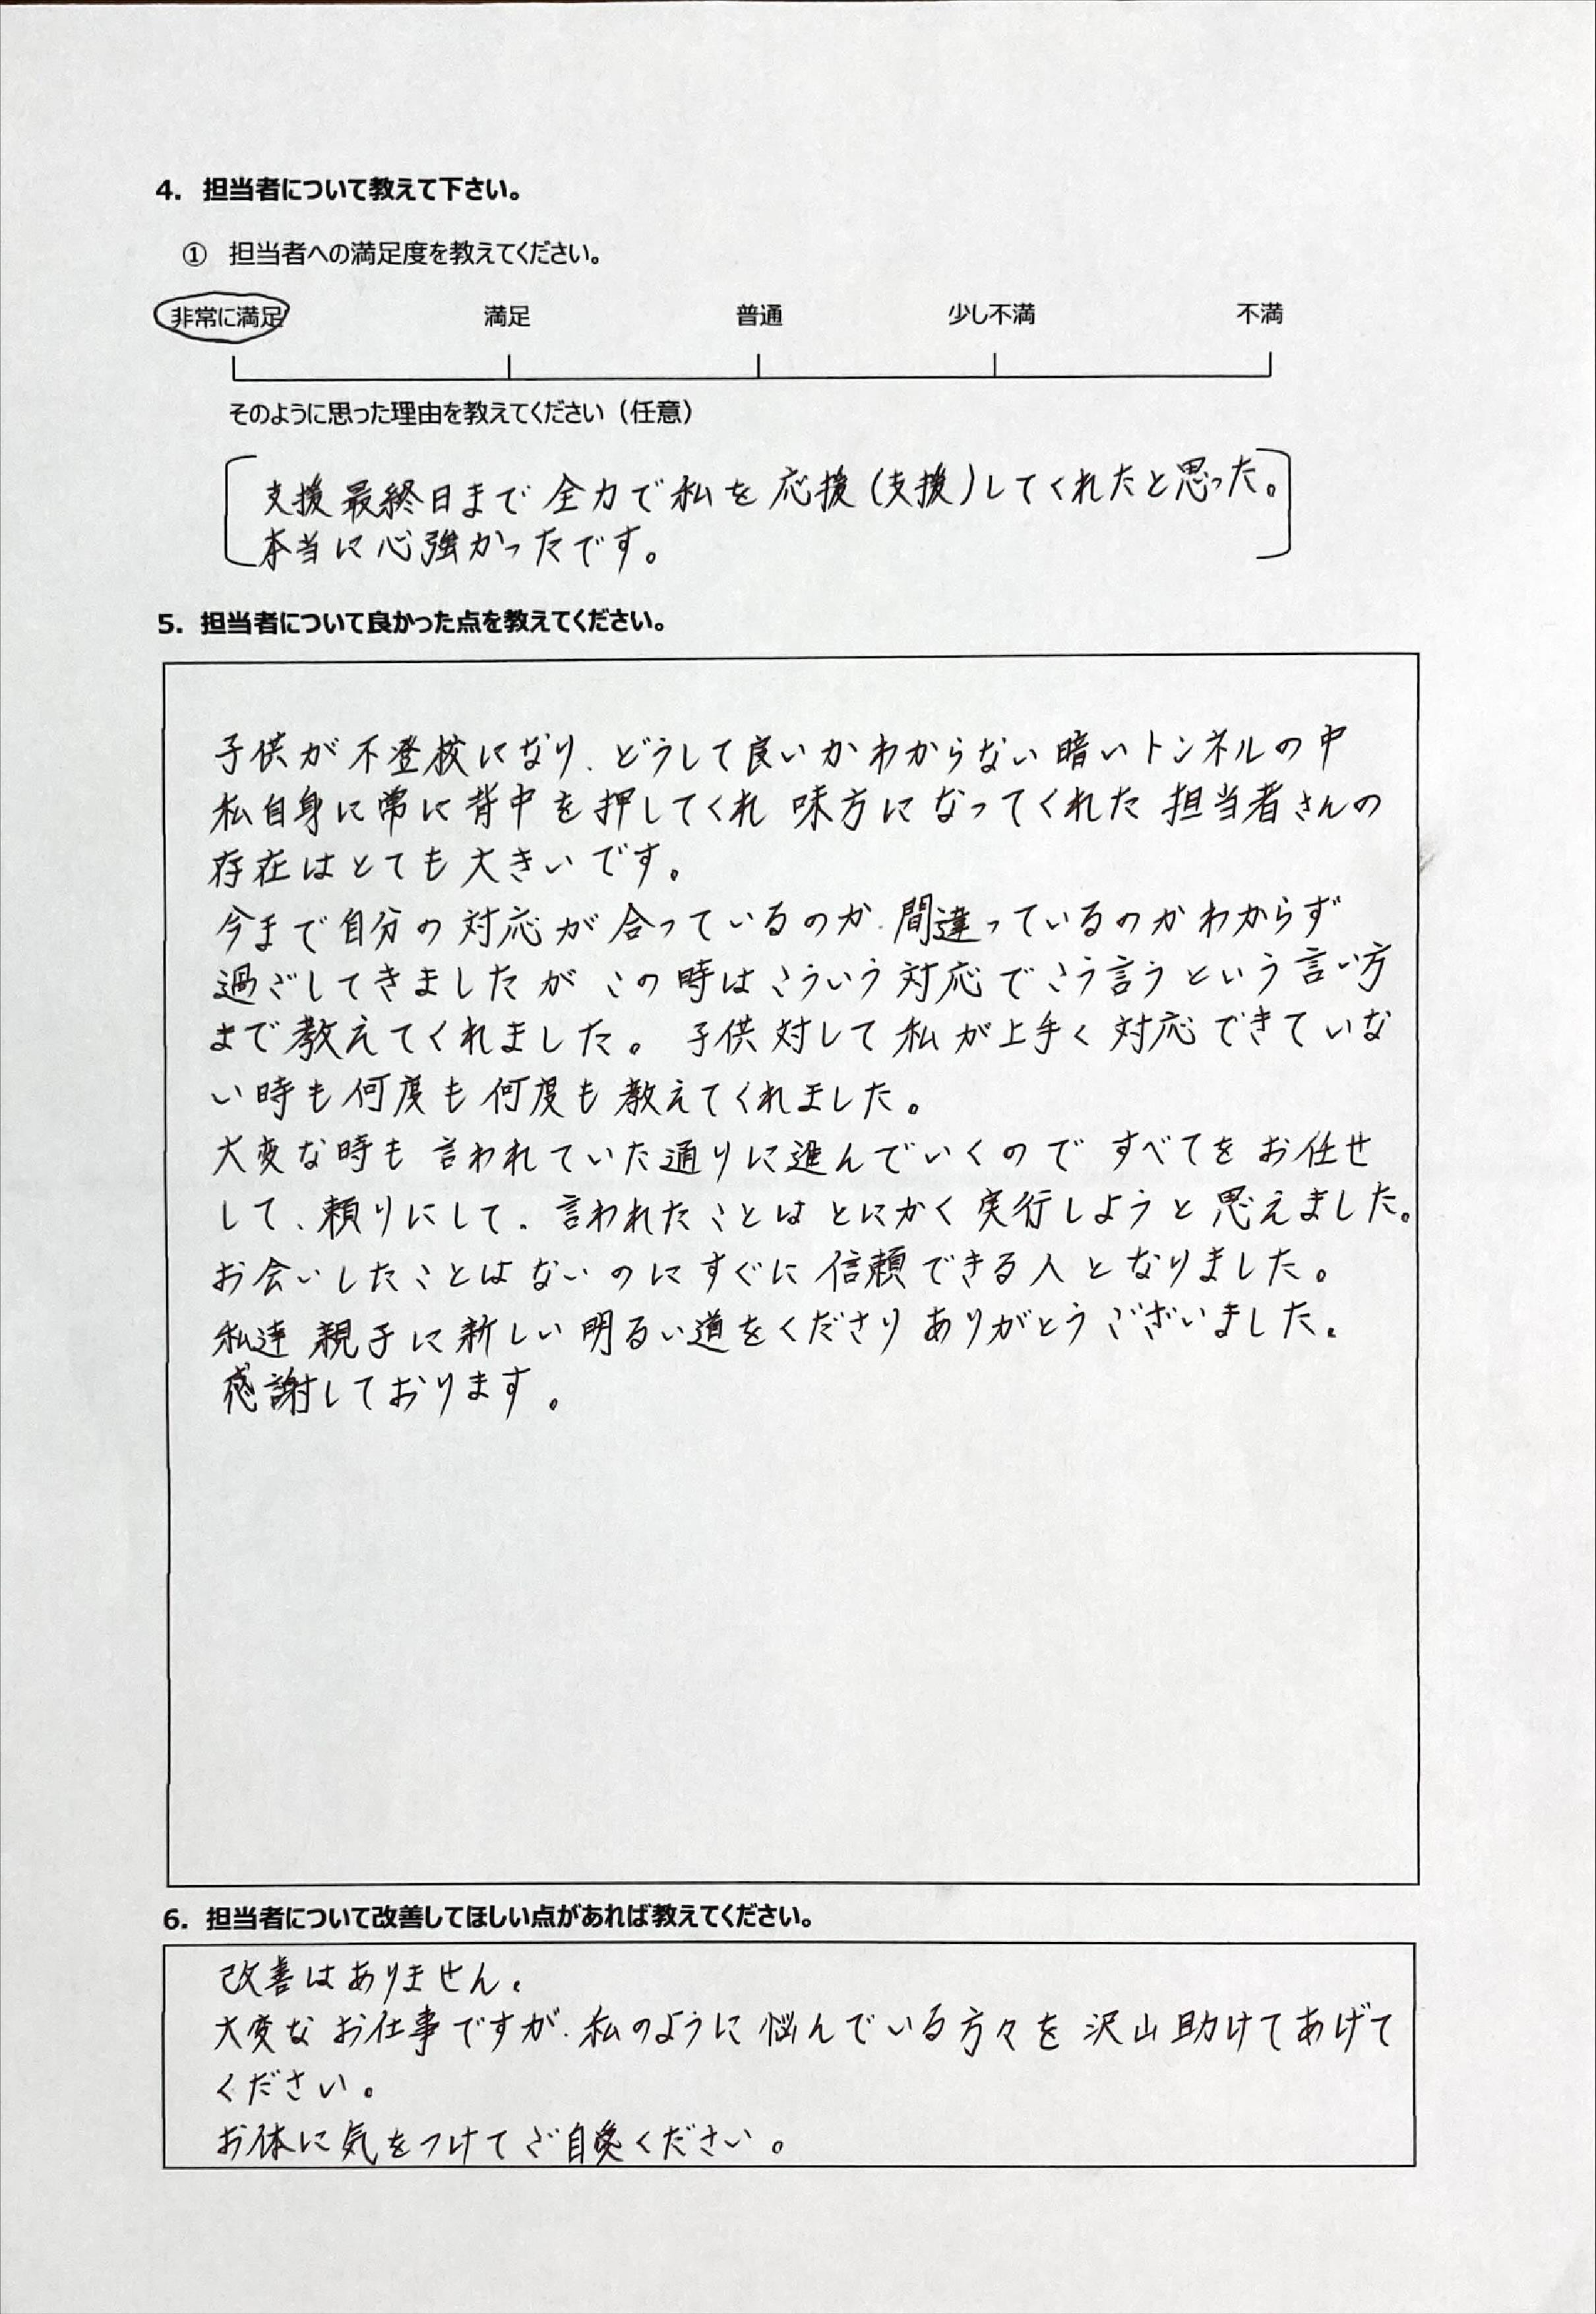 4. 担当者について教えて下さい。
① 担当者への満足度を教えてください。
非常に満足 満足 普通 少し不満 不満
そのように思った理由を教えてください（任意）
支援最終日まで全力で私を応援(支援)してくれたと思った。
本当に心強かったです。
5. 担当者について良かった点を教えてください。
子供が不登校になり、どうして良いかわからない暗いトンネルの中
私自身に常に背中を押してくれ 味方になってくれた 担当者さんの
存在はとても大きいです。
今まで自分の対応が合っているのか、間違っているのかわからず
過ごしてきましたが この時はこういう対応でこう言うという言い方
まで教えてくれました。 子供対して私が上手く対応できていな
い時も何度も何度も教えてくれました。
大変な時も 言われていた通りに進んでいくので すべてを お任せ
して、頼りにして、言われたことは とにかく実行しようと思えました。
お会いしたことはないのにすぐに信頼できる人となりました。
私達 親子に新しい明るい道をくださり ありがとうございました。
感謝しております。
6. 担当者について改善してほしい点があれば教えてください。
改善はありません。
大変な お仕事ですが、私のように悩んでいる方々を 沢山助けてあげて
ください。
お体に気をつけてご自愛ください。